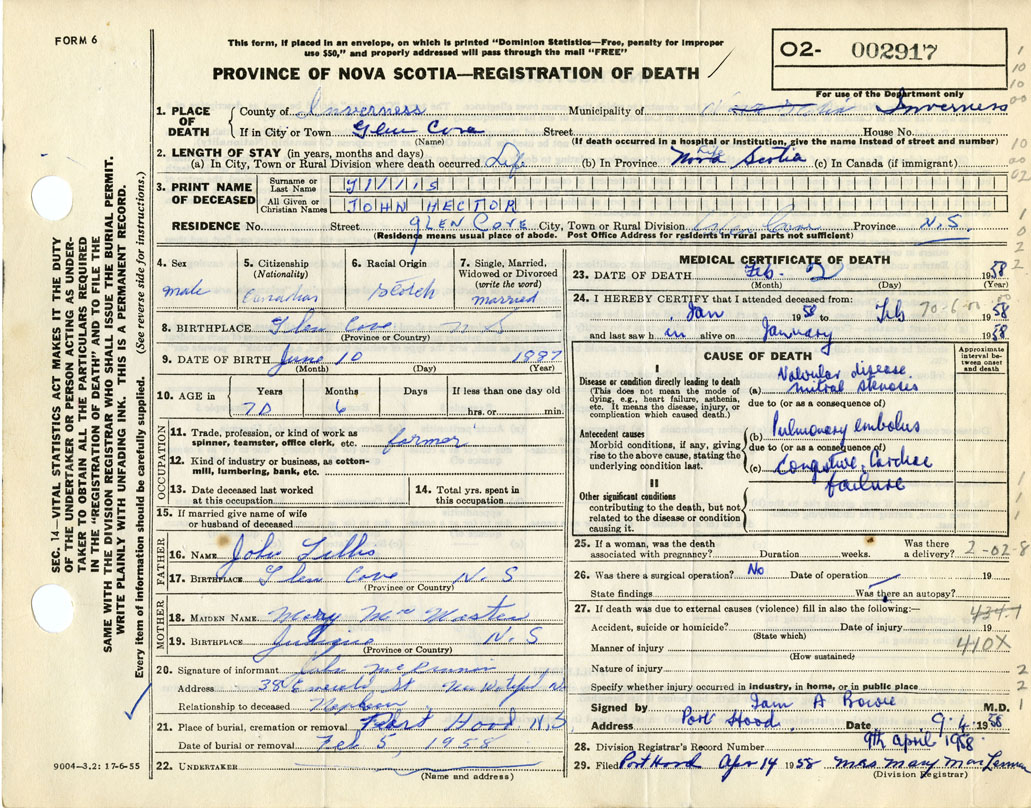 FORM 6
This form, if placed in an envelope, on which is printed "Dominion Statistics—Free, penalty for improper
use $50," and properly addressed will pass through the mail "FREE"
PROVINCE OF NOVA SCOTIA—REGISTRATION OF DEATH
02- 002917
For use of the Department only
1. PLACE OF DEATH
County of Inverness Municipality of Inverness
If in City or Town Glen Cove Street House No.
(Name) (If death occurred in a hospital or institution, give the name instead of street and number)
2. LENGTH OF STAY (in years, months and days)
(a) In City, Town or Rural Division where death occurred Life (b) In Province Life Nova Scotia (c) In Canada (if immigrant)
3. PRINT NAME OF DECEASED
Surname or Last Name GILLIS
All Given or Christian Names JOHN HECTOR
RESIDENCE No. Street GLEN COVE City, Town or Rural Division Glen Cove Province N.S.
(Residence means usual place of abode. Post Office Address for residents in rural parts not sufficient)
4. Sex
male
5. Citizenship
(Nationality)
Canadian
6. Racial Origin
Scotch
7. Single, Married,
Widowed or Divorced
(write the word)
married
8. BIRTHPLACE Glen Cove N S
(Province or Country)
9. DATE OF BIRTH June 10 1887
(Month) (Day) (Year)
10. AGE in
Years Months Days If less than one day old
70 6 hrs. or min.
OCCUPATION
11. Trade, profession, or kind of work as
spinner, teamster, office clerk, etc. farmer
12. Kind of industry or business, as cotton-
mill, lumbering, bank, etc.
13. Date deceased last worked
at this occupation
14. Total yrs. spent in
this occupation
15. If married give name of wife
or husband of deceased
FATHER
16. NAME John Gillis
17. BIRTHPLACE Glen Cove N. S
(Province or Country)
MOTHER
18. MAIDEN NAME Mary Mc Master
19. BIRTHPLACE Judique N. S
(Province or Country)
20. Signature of informant John
Address 38 St
Relationship to deceased Nephew
21. Place of burial, cremation or removal Port Hood N.S
Date of burial or removal Feb 5, 1958
22. UNDERTAKER
(Name and address)
9004—3.2: 17-6-55
SEC. 14—VITAL STATISTICS ACT MAKES IT THE DUTY
OF THE UNDERTAKER OR PERSON ACTING AS UNDER-
TAKER TO OBTAIN ALL THE PARTICULARS REQUIRED
IN THE "REGISTRATION OF DEATH" AND TO FILE THE
SAME WITH THE DIVISION REGISTRAR WHO SHALL ISSUE THE BURIAL PERMIT.
WRITE PLAINLY WITH UNFADING INK. THIS IS A PERMANENT RECORD.
Every item of information should be carefully supplied. (See reverse side for instructions.)
MEDICAL CERTIFICATE OF DEATH
23. DATE OF DEATH Feb 2 1958
(Month) (Day) (Year)
24. I HEREBY CERTIFY that I attended deceased from:
Jan 1958 to Feb 1958
and last saw h im alive on January 1958
CAUSE OF DEATH
Approximate interval between onset and death
I
Disease or condition directly leading to death
(This does not mean the mode of
dying, e.g., heart failure, asthenia,
etc. It means the disease, injury, or
complication which caused death.)
(a) Valvular disease
mitral stenosis
due to (or as a consequence of)
Antecedent causes
Morbid conditions, if any, giving
rise to the above cause, stating the
underlying condition last.
(b) Pulmonary embolus
due to (or as a consequence of)
(c) Congestive Cardiac
failure
II
Other significant conditions
contributing to the death, but not
related to the disease or condition
causing it.
25. If a woman, was the death Was there
associated with pregnancy? Duration weeks. a delivery?
2-02-8
26. Was there a surgical operation? No Date of operation 19
State findings Was there an autopsy?
27. If death was due to external causes (violence) fill in also the following:—
Accident, suicide or homicide? Date of injury 19
(State which)
434.1
Manner of injury 410X
(How sustained)
Nature of injury
Specify whether injury occurred in industry, in home, or in public place
Signed by M.D.
Address Port Hood Date 9. 4. 1958
9th April 1958
28. Division Registrar's Record Number
29. Filed Port Hood Apr 14 1958 Mrs Mary
(Division Registrar)